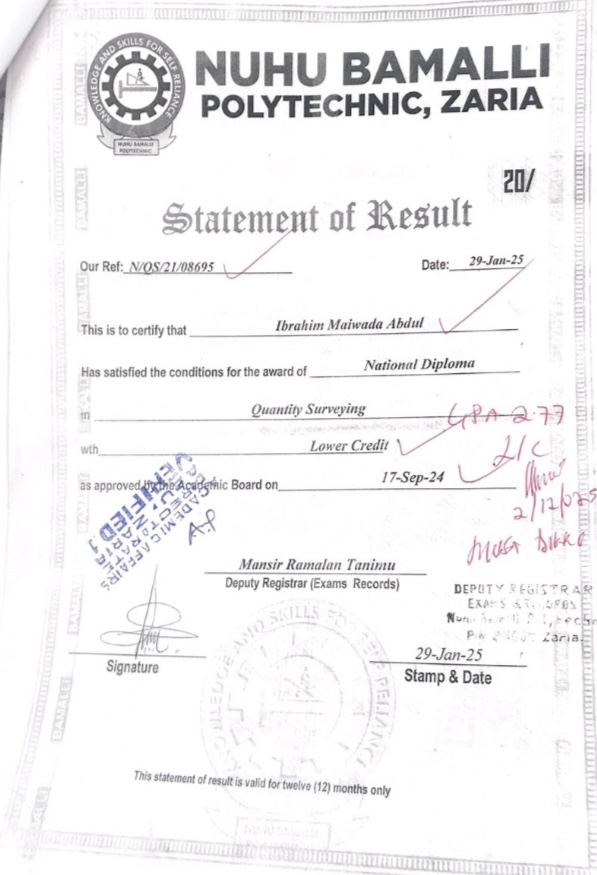 KNOWLEDGE AND SKILLS FOR SELF RELIANCE
NUHU BAMALLI
POLYTECHNIC
NUHU BAMALLI
POLYTECHNIC, ZARIA
20/
Statement of Result
Our Ref: N/QS/21/08695
Date: 29-Jan-25
This is to certify that Ibrahim Maiwada Abdul
Has satisfied the conditions for the award of National Diploma
in Quantity Surveying
GPA 2.77
wth Lower Credit
L/C
as approved by the Academic Board on 17-Sep-24
2/12/025
MUSA
ACADEMIC AFFAIRS
VERIFIED
Mansir Ramalan Tanimu
Deputy Registrar (Exams Records)
DEPUTY REGISTRAR
EXAMS
Zaria.
Signature
29-Jan-25
Stamp & Date
KNOWLEDGE AND SKILLS FOR SELF RELIANCE
This statement of result is valid for twelve (12) months only